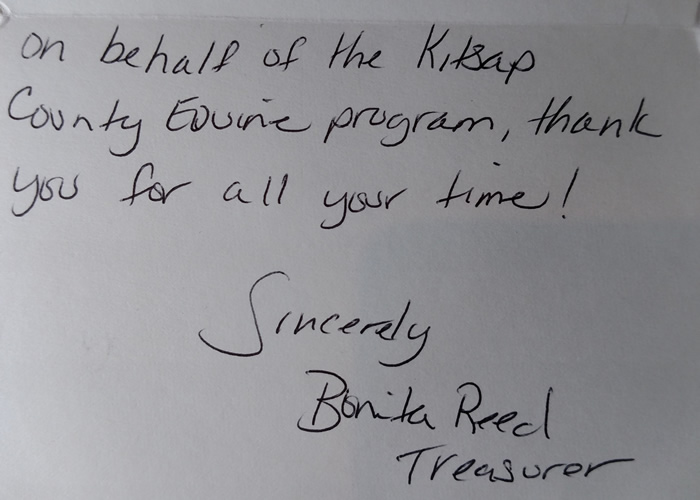 on behalf of the Kitsap
County Equine program, thank
you for all your time!
Sincerely
Bonita Reed
Treasurer